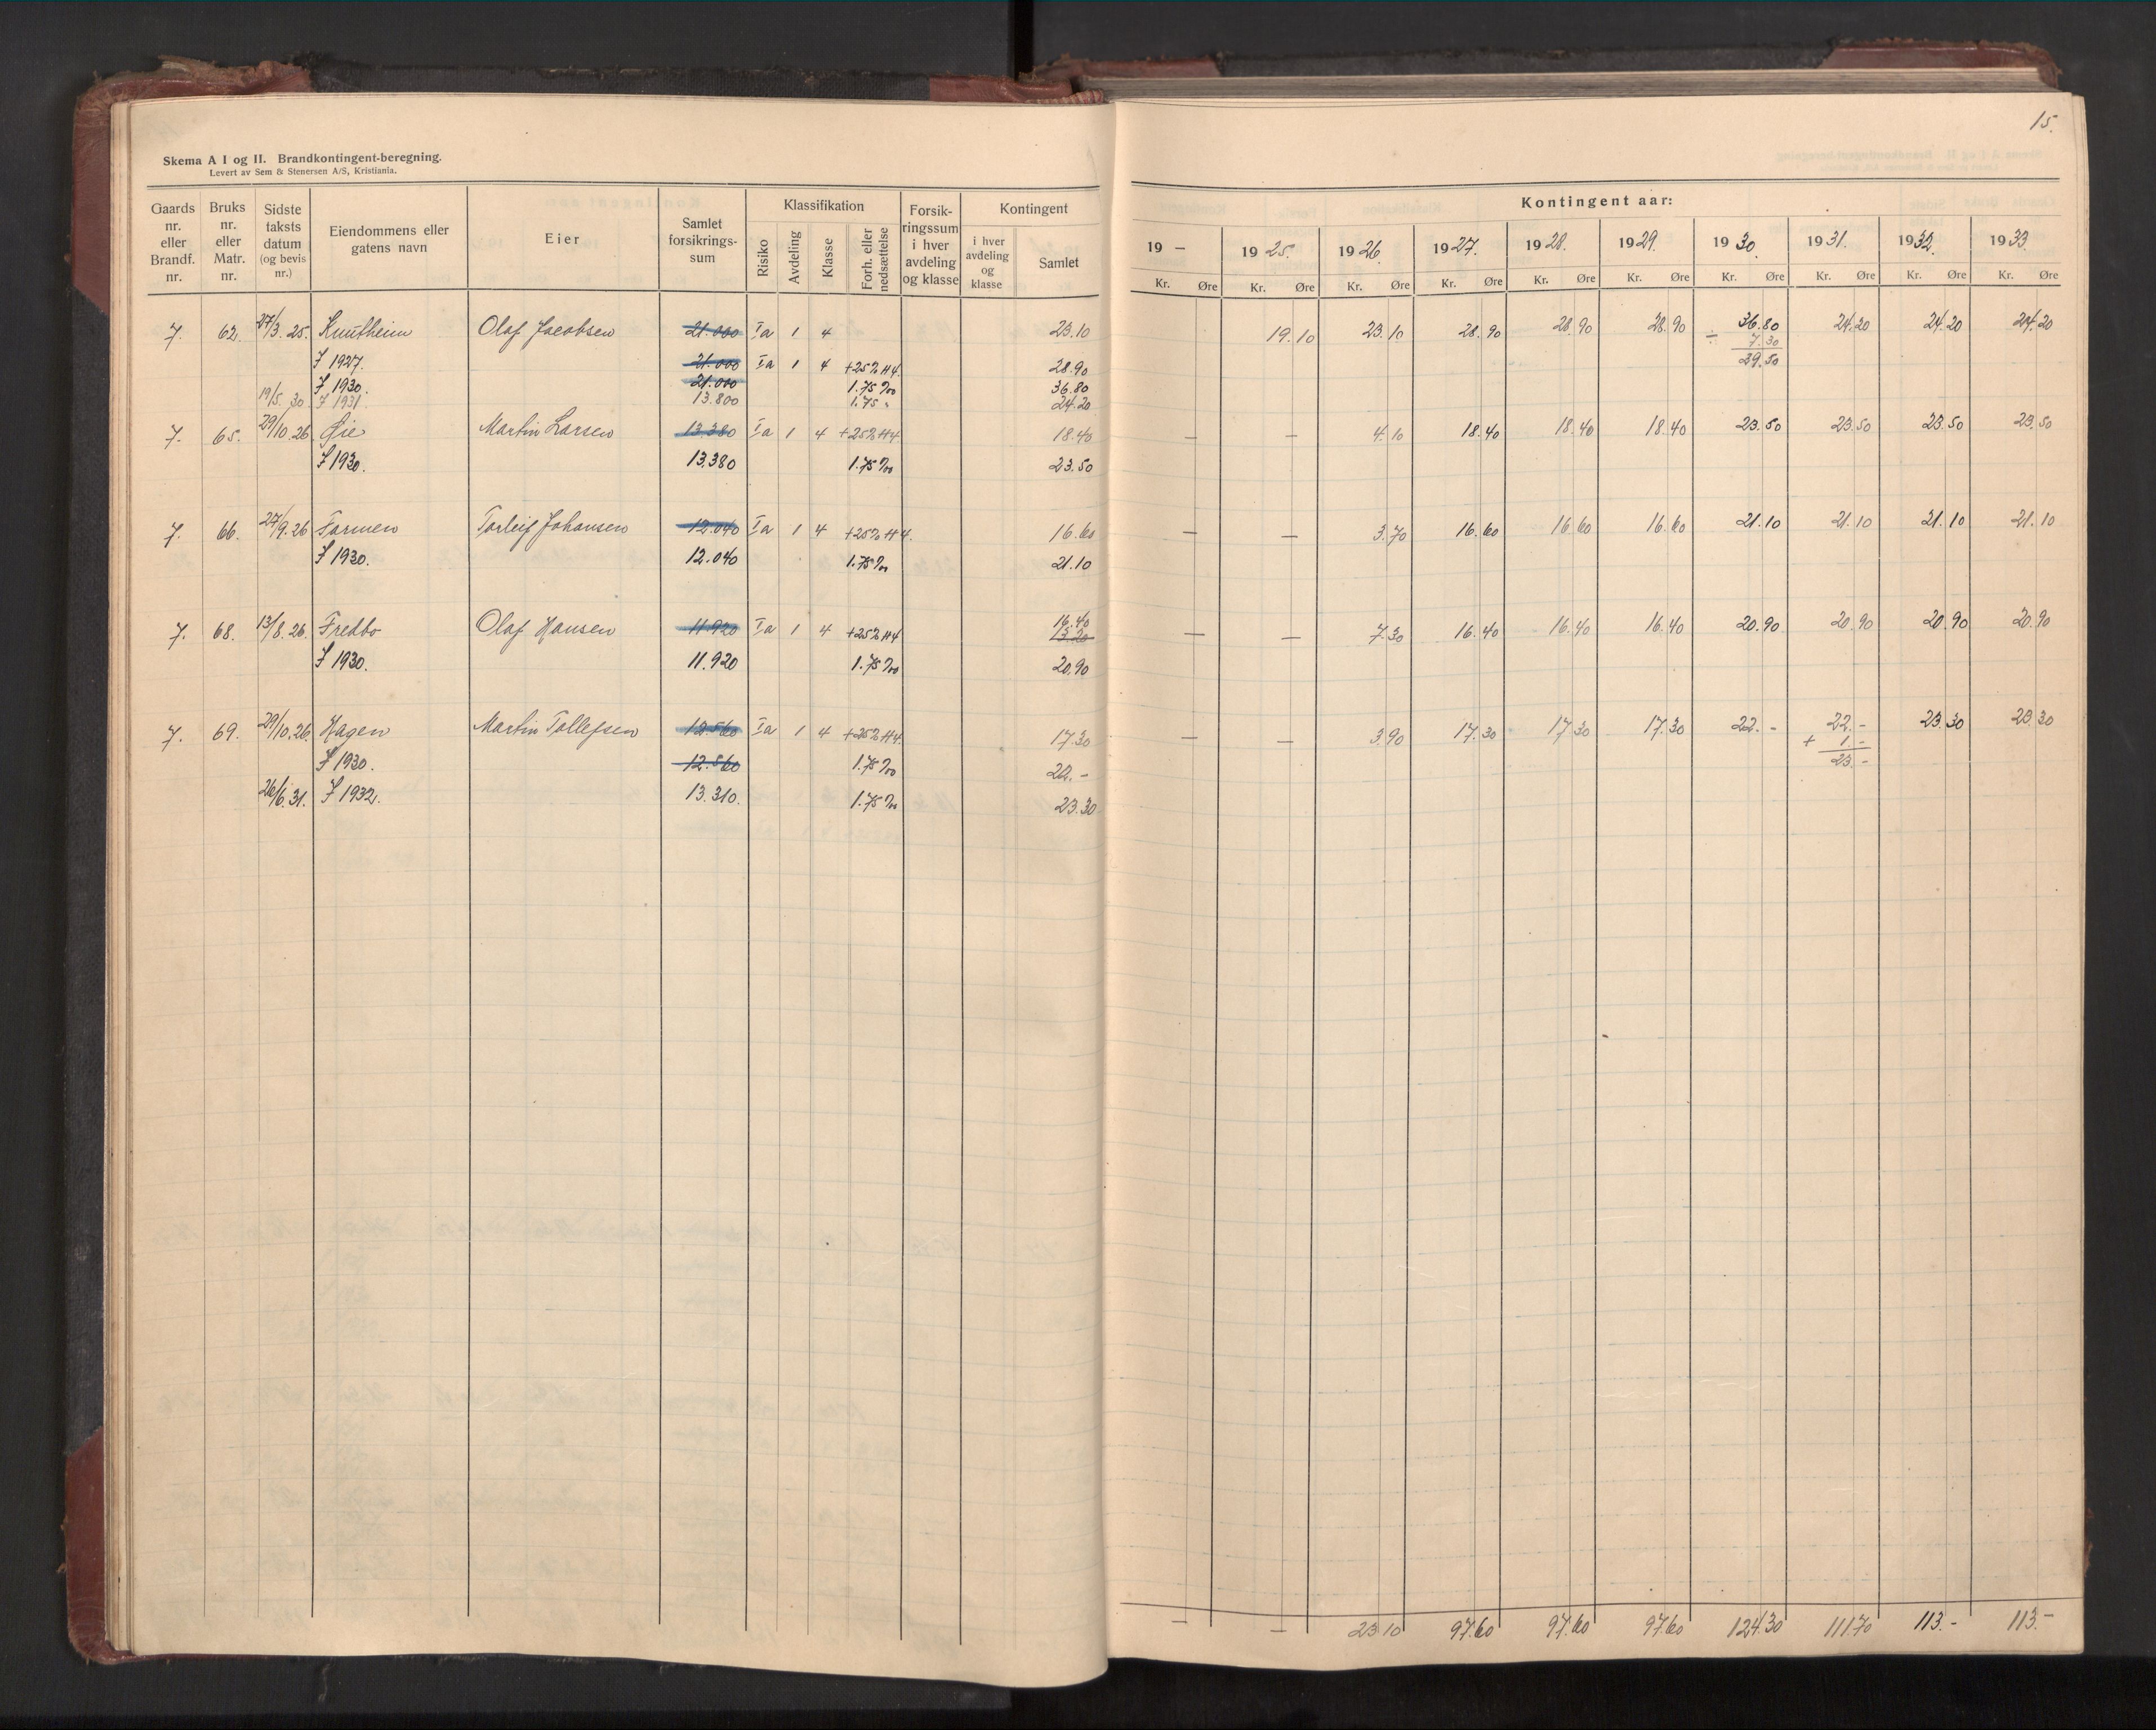 15.
Skema A I og II. Brandkontingent-beregning.
Levert av Sem & Stenersen A/S, Kristiania.
Gaards nr. eller Brandf. nr. | Bruks nr. eller Matr. nr. | Sidste taksts datum (og bevis nr.) | Eiendommens eller gatens navn | Eier | Samlet forsikrings-sum | Klassifikation | Risiko | Avdeling | Klasse | Forh. eller nedsættelse | Forsik-ringssum i hver avdeling og klasse | Kontingent | i hver avdeling og klasse | Samlet
Kontingent aar:
19 — | 1925. | 1926. | 1927. | 1928. | 1929. | 1930. | 1931. | 1932. | 1933.
Kr. Øre | Kr. Øre | Kr. Øre | Kr. Øre | Kr. Øre | Kr. Øre | Kr. Øre | Kr. Øre | Kr. Øre | Kr. Øre
7. 62. 27/3. 25. Knutheim Olaf Jacobsen 21.000 Ia 1 4 23.10 19.10 23.10 28.90 28.90 28.90 36.80 24.20 24.20 24.20
÷ 7.30
F 1927. 21.000 Ia 1 4 +25% H4. 28.90 29.50
F 1930. 21.000 1.75‰ 36.80
19/5. 30. F 1931. 13.800 1.75 " 24.20
7. 65. 29/10.26 Øie Martin Larsen 13.380 Ia 1 4 +25% H4 18.40 — — 4.10 18.40 18.40 18.40 23.50 23.50 23.50 23.50
F 1930. 13.380 1.75‰ 23.50
7. 66. 27/9.26 Farmen Torleif Johansen 12.040 Ia 1 4 +25% H4. 16.60 — — 3.70 16.60 16.60 16.60 21.10 21.10 21.10 21.10
F 1930. 12.040 1.75‰ 21.10
7. 68. 13/8.26. Fredbo Olaf Hansen 11.920 Ia 1 4 +25% H4 16.40 — — 7.30 16.40 16.40 16.40 20.90 20.90 20.90 20.90
13.20
F 1930. 11.920 1.75‰ 20.90
7. 69. 29/10.26. Hagen Martin Tollefsen 12.560 Ia 1 4 +25% H4. 17.30 — — 3.90 17.30 17.30 17.30 22.- 22.- 23.30 23.30
+ 1.-
F 1930. 12.560 1.75‰ 22.- 23.-
26/6.31. F 1932. 13.310. 1.75‰ 23.30
— — 23.10 97.60 97.60 97.60 124.30 111.70 113.- 113.-